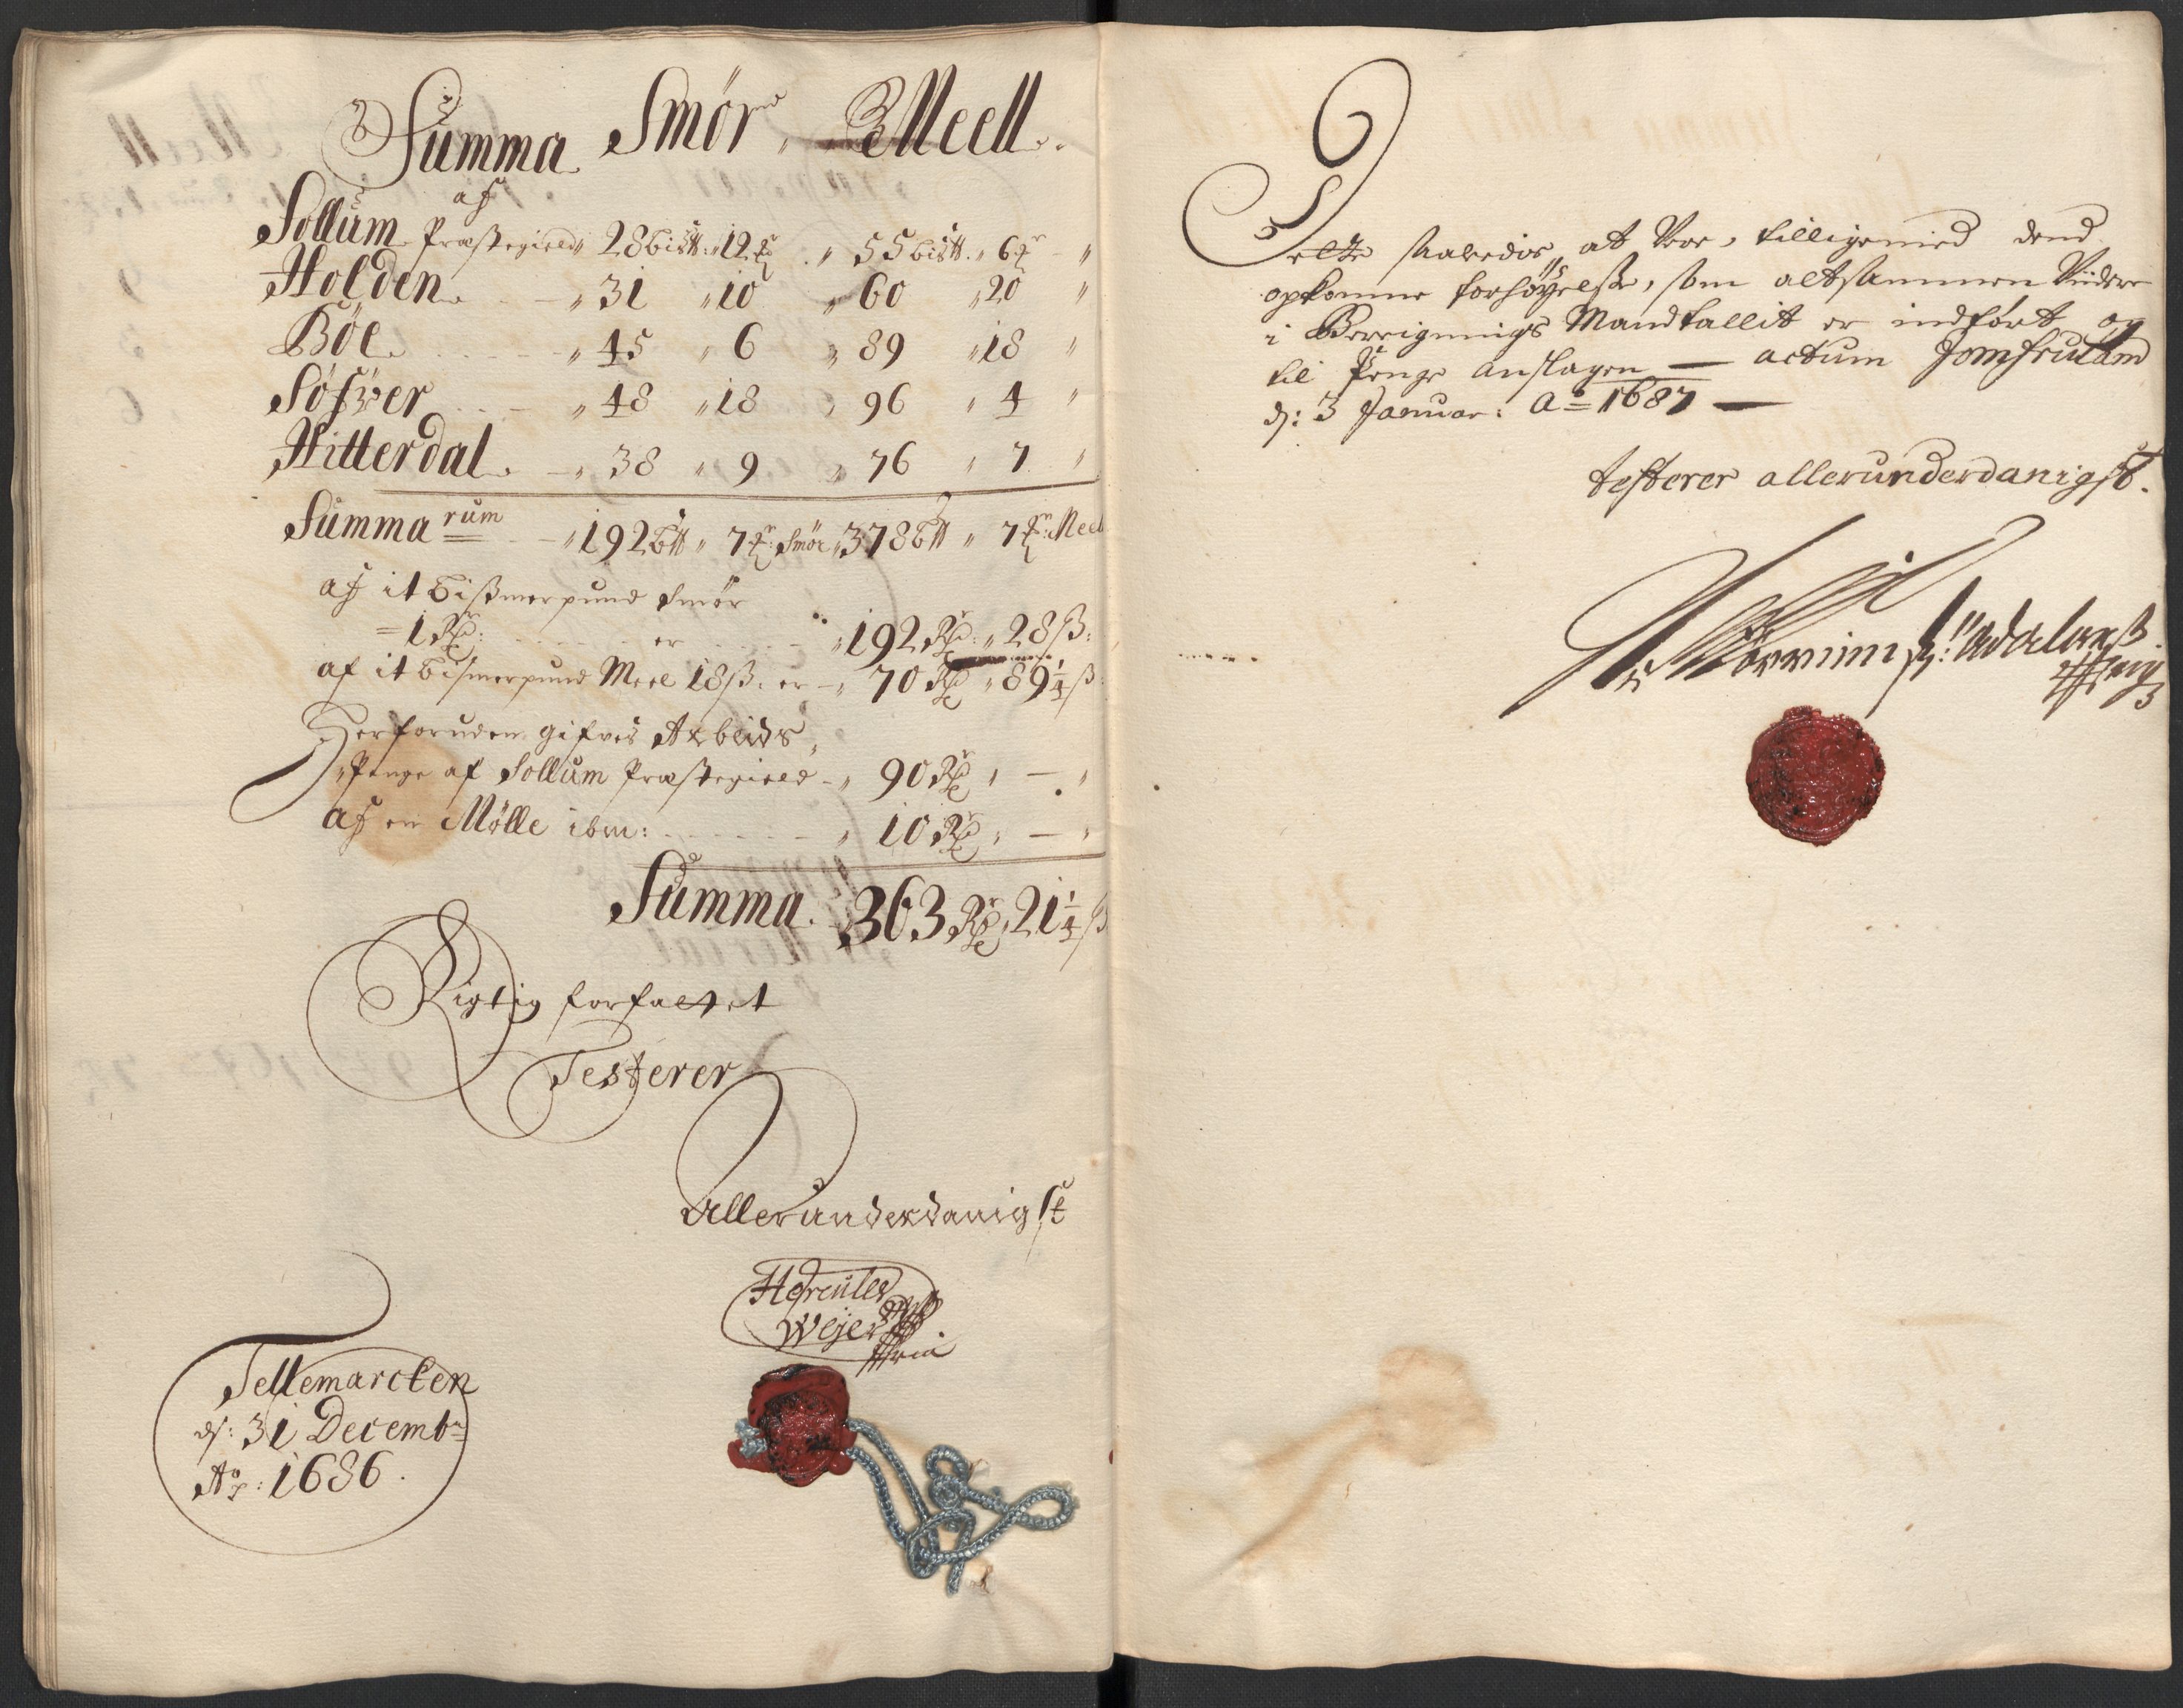 Summa Smör Meell.
af
Sollum Præstegield 28 bißtt: 12 55 bißtt. 6
Holden 31 10 60 20
Böe 45 6 89 18
Söfver 48 18 96 4
Hitterdal 38 9 76 7
Summarum 192 btt 7 Smör 378 btt 7 Meel
af it bißmerpund Smör
1 Rdr: er 192 Rdr: 28 ß:
af it bismerpund Meel 18 ß. er 70 Rdr 89 1/4 ß
Herforuden gifves Arbeids
Penge af Sollum Præstegield 90 Rdr
af en Mölle ibm: 10 Rdr
Summa. 363 Rdr 21 1/4 ß
Rigtig forfattet
Testerer
Allerunderdanigst
Hercules
Weyer
mria
Tellemarcken
d: 31 Decembr
Ao: 1686.
Dette saaledis at Være, tilligemed dend
opkomne forhøyelse, som altsammen Videre
i Mandtallit er indført og
til Penge anslagen — actum Jomfruland
d: 3 Januar: Ao 1687 —
testerer allerunderdanigst.